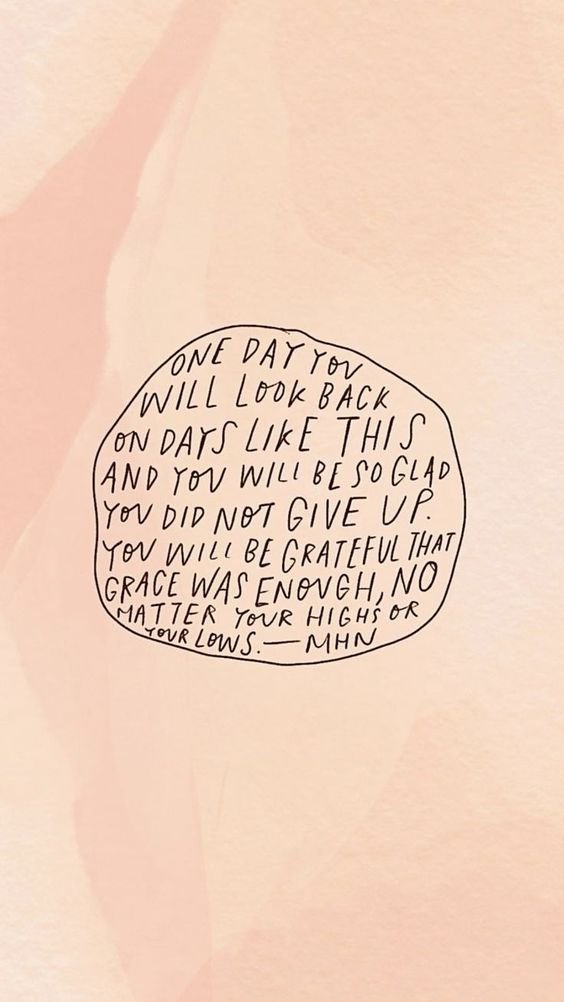 ONE DAY YOU
WILL LOOK BACK
ON DAYS LIKE THIS
AND YOU WILL BE SO GLAD
YOU DID NOT GIVE UP.
YOU WILL BE GRATEFUL THAT
GRACE WAS ENOUGH, NO
MATTER YOUR HIGHS OR
YOUR LOWS. — MHN